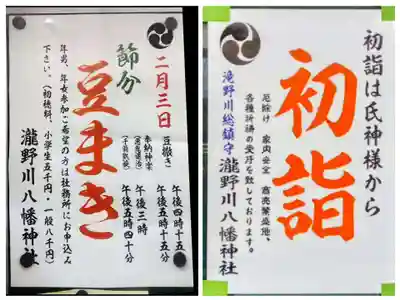 二月三日
節分
豆まき
豆撒き
午後四時十五分
午後五時十五分
奉納神楽
午後三時
午後五時四十分
年男、年女参加ご希望の方は社務所にお申込み
下さい。(初穂料、小学生五千円・一般八千円)
瀧野川八幡神社
初詣は氏神様から
初詣
厄除け 家内安全 商売繁盛他、
各種祈祷の受付を致しております。
滝野川総鎮守
瀧野川八幡神社